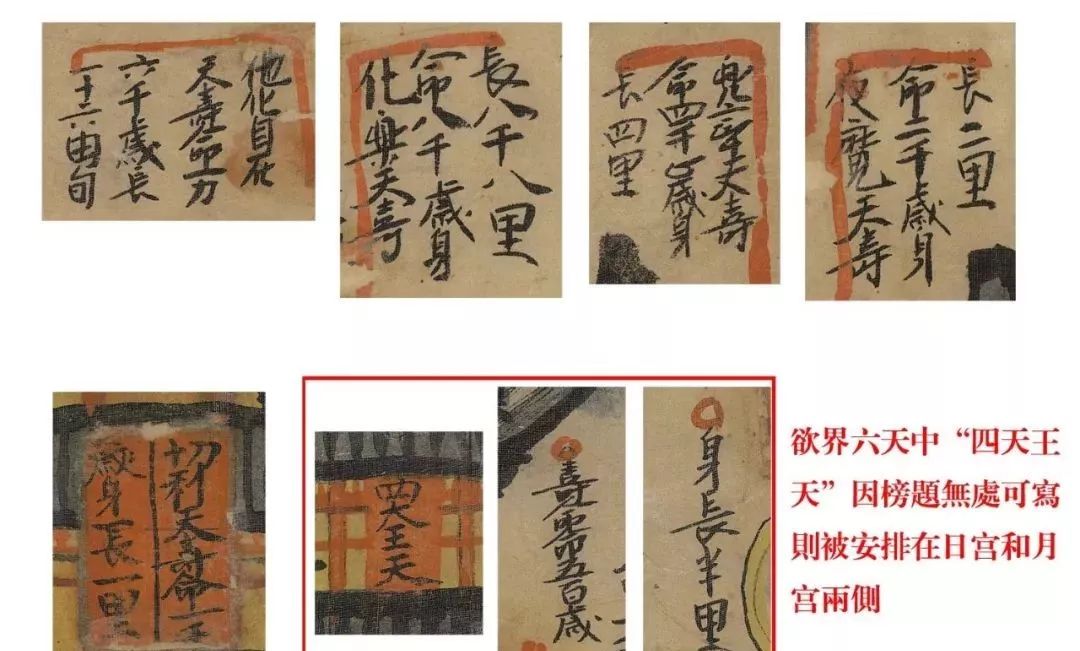 他化自在
天壽命万
六千歲長
一十六由旬
化樂天壽
命八千歲身
長八千八里
天壽
命四千歲身
長四里
夜魔天壽
命二千歲身
長二里
切利天壽命一千
歲身長一里
四天王天
壽命五百歲
身長半里
欲界六天中“四天王
天”因榜題無处可寫
則被安排在日宫和月
宫兩側